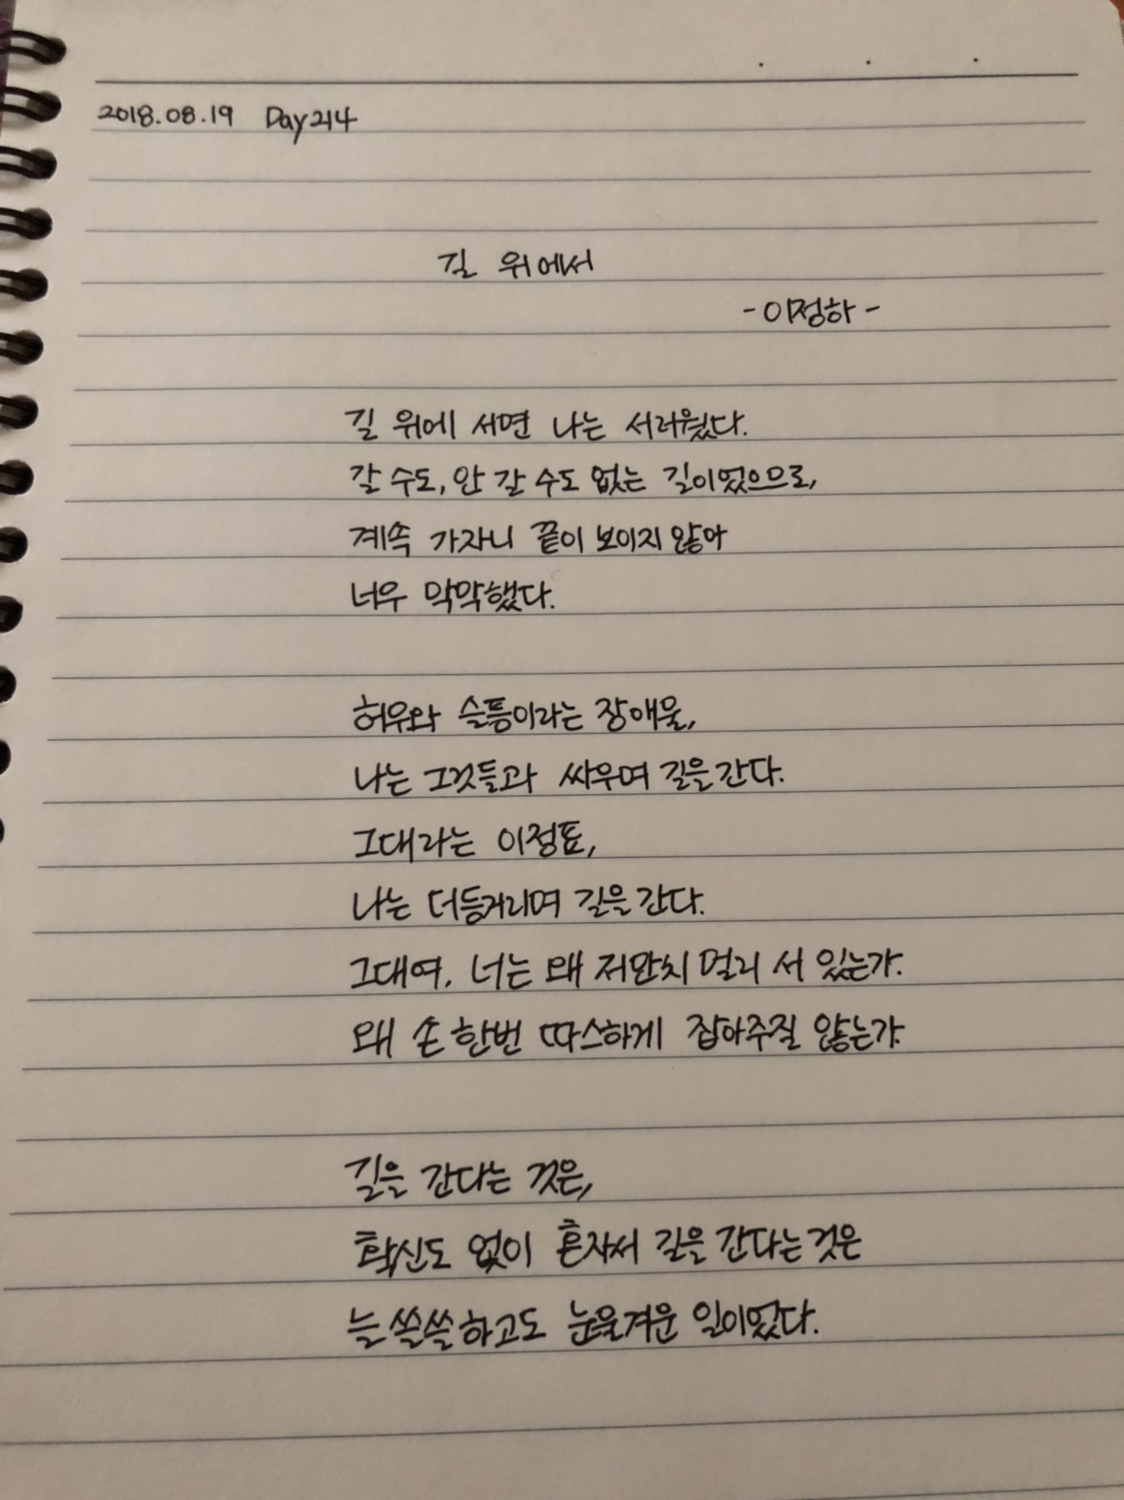 2018.08.19 Day214
길 위에서
-이정하-
길 위에 서면 나는 서러웠다.
갈 수도, 안 갈 수도 없는 길이었으므로,
계속 가자니 끝이 보이지 않아
너무 막막했다.
허무와 슬픔이라는 장애물,
나는 그것들과 싸우며 길을 간다.
그대라는 이정표,
나는 더듬거리며 길을 간다.
그대여, 너는 왜 저만치 멀리 서 있는가.
왜 손 한번 따스하게 잡아주질 않는가.
길을 간다는 것은,
확신도 없이 혼자서 길을 간다는 것은
늘 쓸쓸하고도 눈물겨운 일이었다.